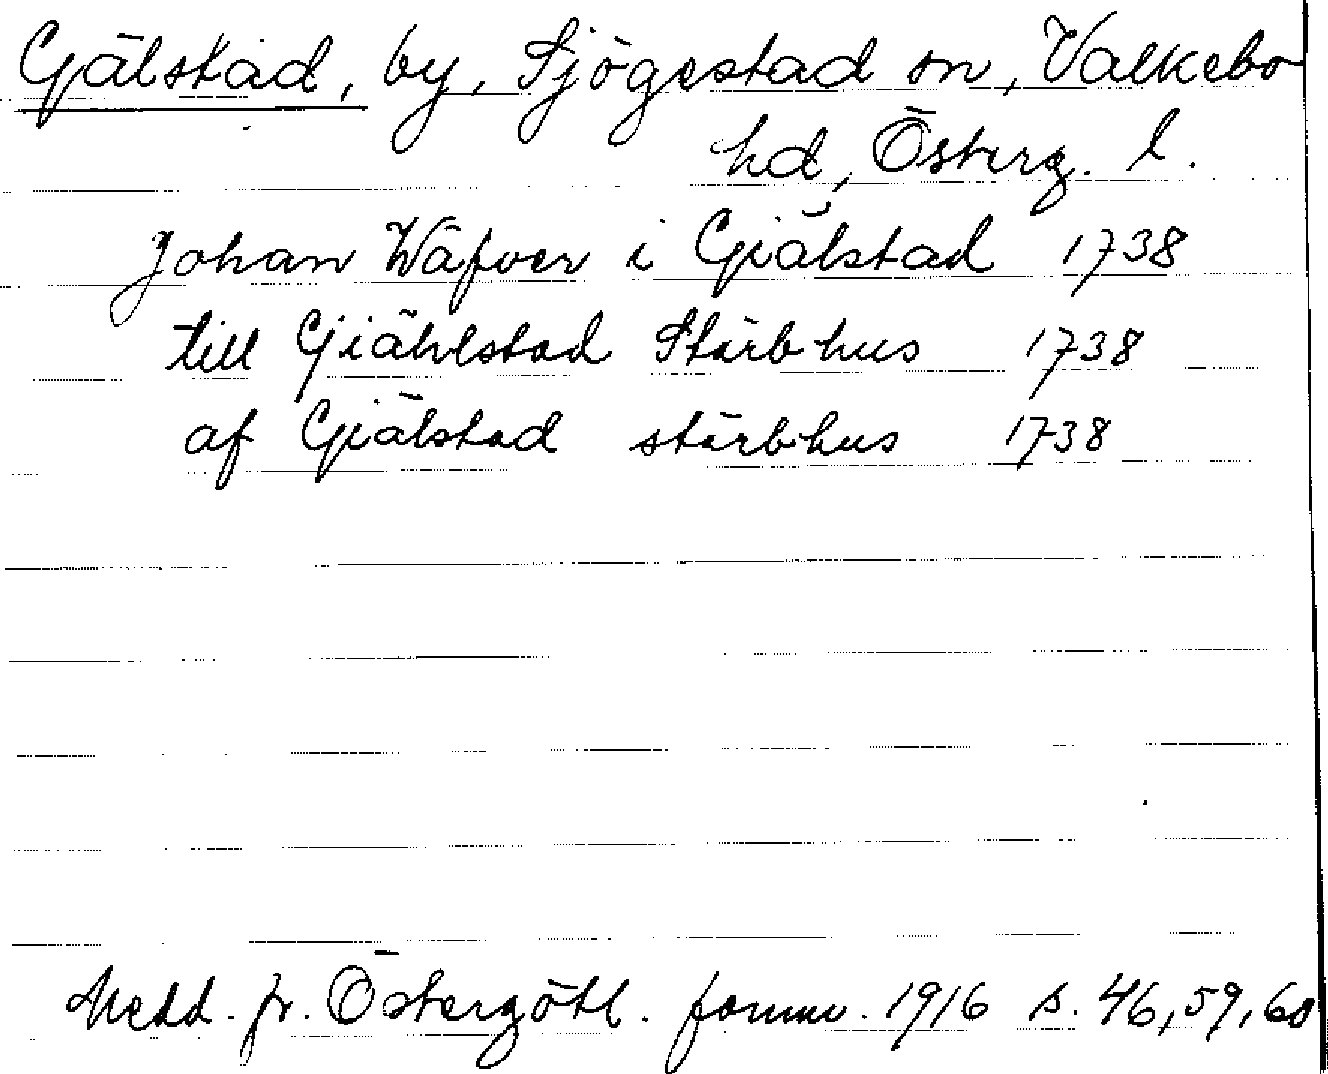 Gälstad, by, Sjögestad sn, Valkebo
hd, Österg. l.
Johan Wäfver i Giälstad 1738
till Giählstad Stärbhus 1738
af Giälstad stärbhus 1738
Medd. fr. Östergötl. fornm. 1916 s. 46, 59, 60